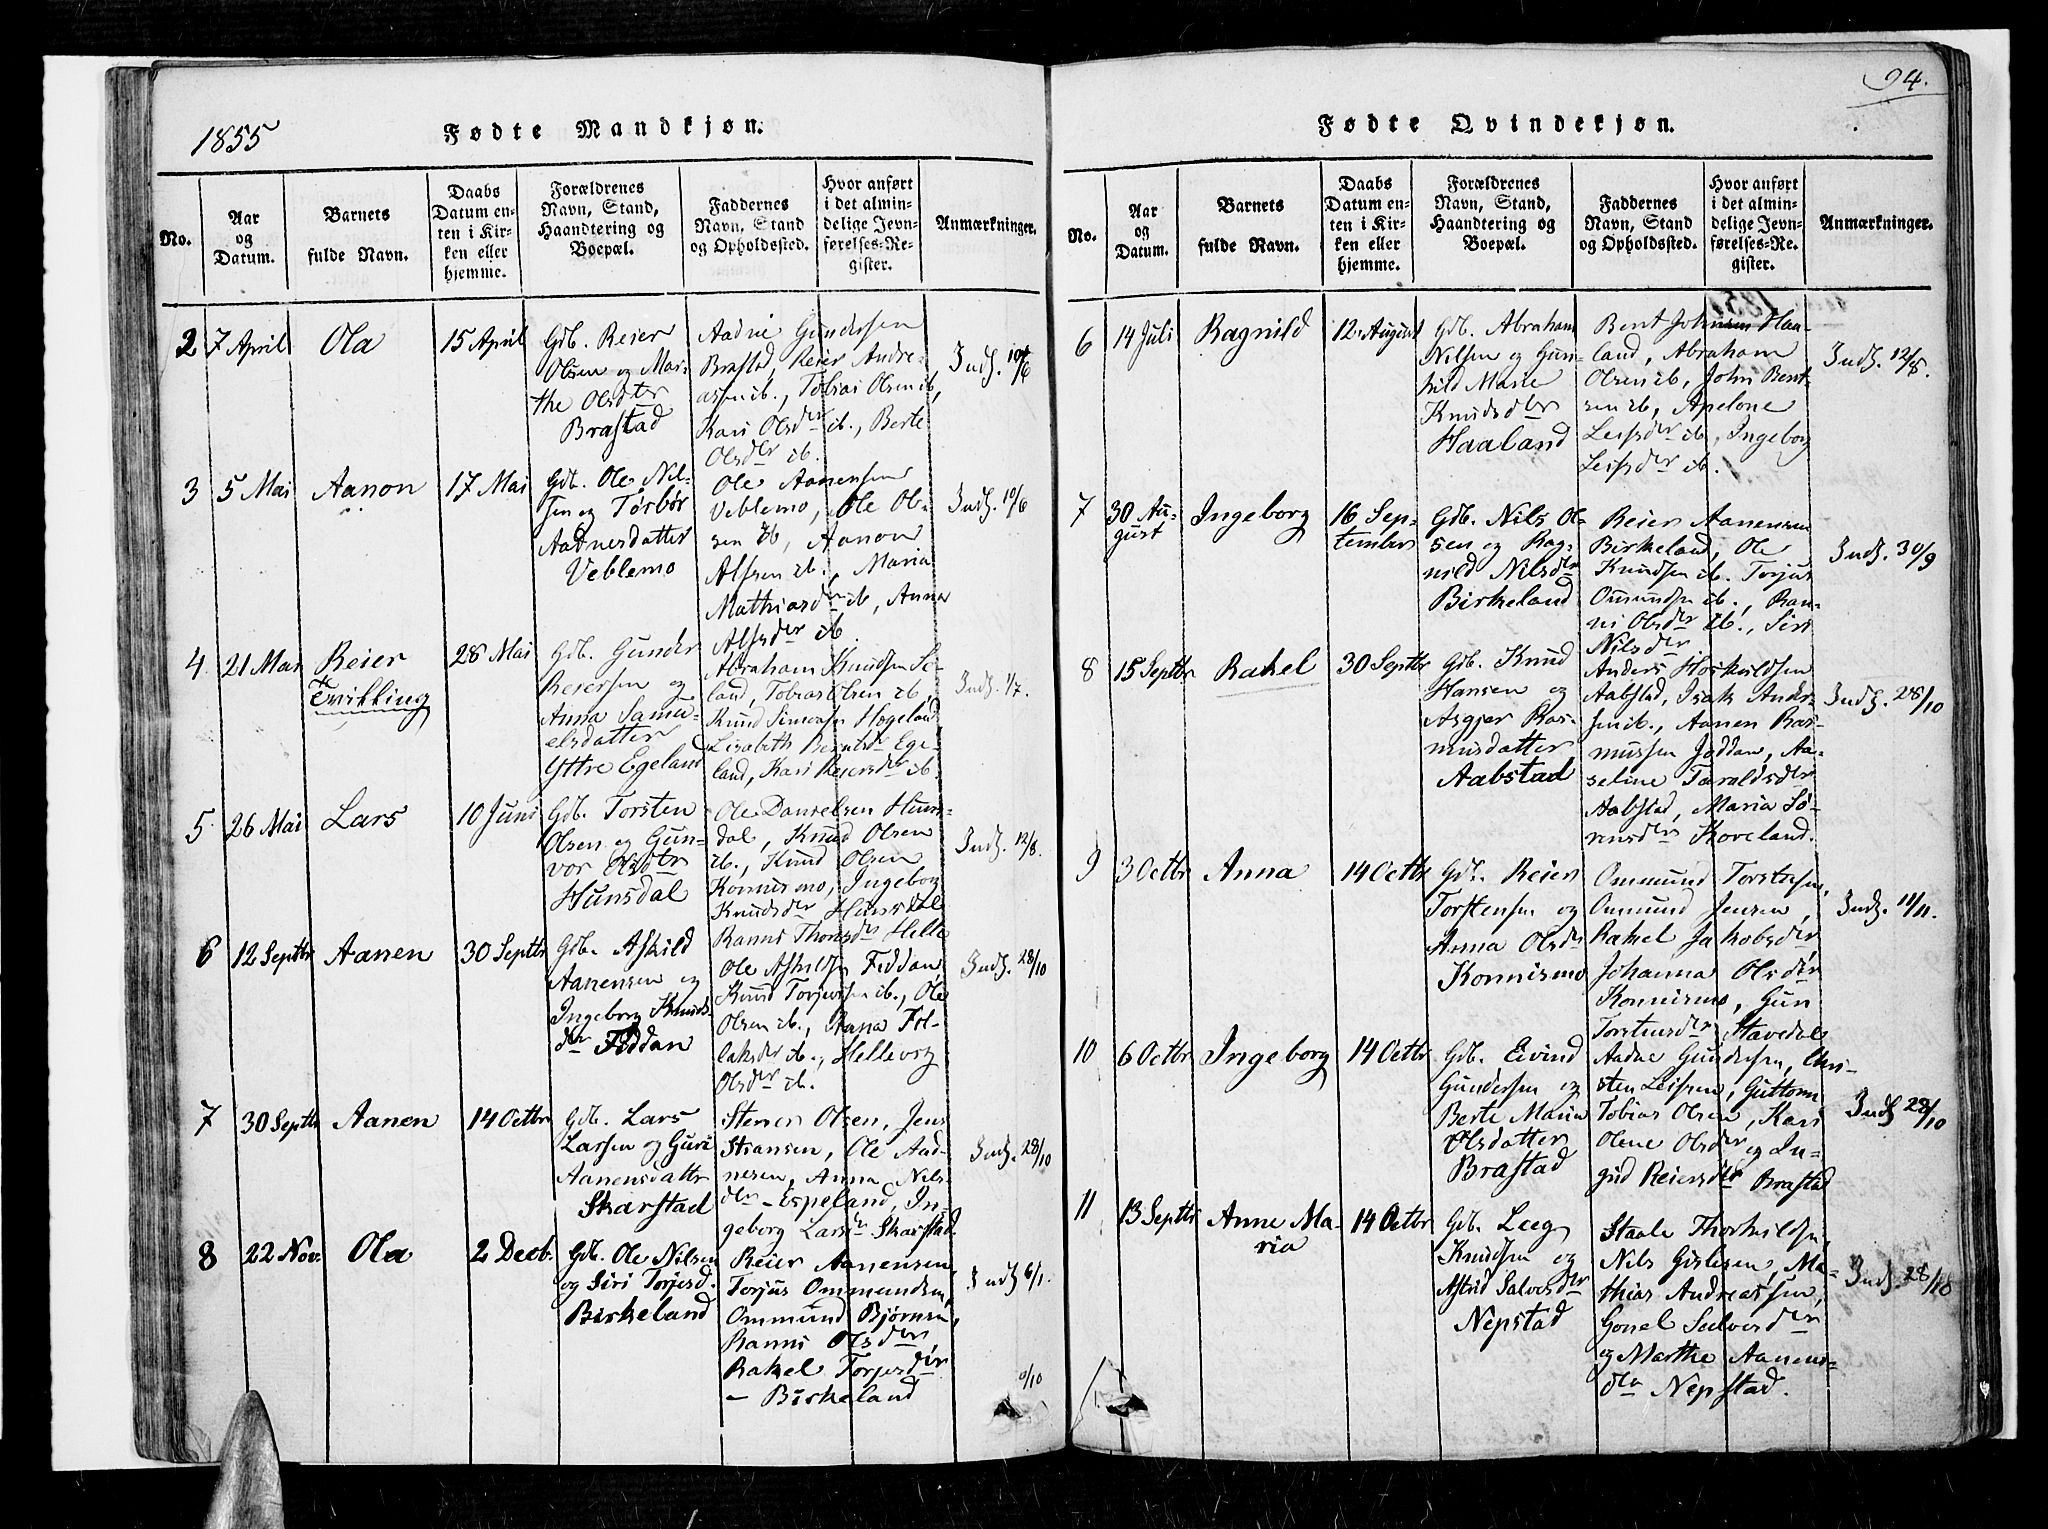 1855
Fødte Mandkjøn.
No.
Aar
og
Datum.
Barnets
fulde Navn.
Daabs
Datum en-
ten i Kir-
ken eller
hjemme.
Forældrenes
Navn, Stand,
Haandtering og
Boepæl.
Faddernes
Navn, Stand
og Opholdssted.
Hvor anført
i det almin-
delige Jevn-
førelses-Re-
gister.
Anmærkninger.
2
7 April
Ola
15 April
Gdb. Reier
Olsen og Mar-
the Olsdtr
Brastad
Aadne Gundersen
Brastad, Reier Andre-
asen ib., Tobias Olsen ib,
Kari Olsder ib., Berte
Olsder ib.
Inds. 10/6
3
5 Mai
Aanon
17 Mai
Gdb. Ole Nil-
sen og Tørbør
Aadnesdatter
Veblemo
Ole Aanensen
Veblemo, Ole Ol-
sen ib, Aanon
Alfsen ib., Maria
Mathiasdr ib, Anna
Alfsder ib.
Inds. 10/6
4
21 Mai
Reier
Tvilling
28 Mai
Gdb. Gunder
Reiersen og
Anna Samu-
elsdatter
Yttre Egeland
Abraham Knudsen
land, Tobias Olsen ib,
Knud Simonsen Høgeland
Lisabeth Berntsdr Ege-
land, Kari Reiersder ib.
Inds. 1/7.
5
26 Mai
Lars
10 Juni
Gdb. Torsten
Olsen og Gun-
vor Olsdtr
Hunsdal
Ole Danielsen Huns-
dal, Knud Olsen
ib., Knud Olsen
Konnismo, Ingeborg
Knudsder Hunsdal
Inds. 12/8.
6
12 Septbr
Aanen
30 Septbr
Gdb. Askild
Aanensen og
Ingeborg Knuds-
der Fiddan
Ranni Thomsder Helle
Ole Askildsen Fiddan,
Knud Torjussen ib., Ole
Olsen ib., Anna Fol-
laksder ib., Hellevig
Olsder ib.
Inds. 28/10
7
30 Septbr
Aanen
14 Octbr
Gdb. Lars
Larsen og Guri
Aanensdattr
Skarstad
Stener Olsen, Jens
Stransen, Ole Aad-
nesen, Anna Nils-
der - Espeland, In-
geborg Larsdr Skarstad.
Inds. 28/10
8
22 Nov.
Ola
2 Decb.
Gdb. Ole Nilsen
og Siri Torjesd.
Birkeland
Reier Aanensen,
Torjus Ommundsen,
Ommund Bjørnsen,
Ranni Olsder
Rakel Torjesder
- Birkeland
Inds 6/1.
94.
Fødte Qvindekjøn.
No.
Aar
og
Datum.
Barnets
fulde Navn.
Daabs
Datum en-
ten i Kir-
ken eller
hjemme.
Forældrenes
Navn, Stand,
Haandtering og
Boepæl.
Faddernes
Navn, Stand
og Opholdssted.
Hvor anført
i det almin-
delige Jevn-
førelses-Re-
gister.
Anmærkninger.
6
14 Juli
Ragnild
12 August
Gdb. Abraham
Nilsen og Gun-
hild Marie
Knudsder
Haaland
Bent Johnsen Haa-
land, Abraham
Olsen ib, John Bent-
sen ib, Apelone
Leifsder ib, Ingeborg
Leifsder ib.
Inds. 12/8.
7
30 Au-
gust
Ingeborg
16 Sep-
tember
Gdb. Nils Ol-
sen og Rag-
nild Nilsder
Birkeland
Reier Aanensen
Birkeland, Ole
Knudsen ib. Torjus
Omundsen ib., Ran-
ni Olsder ib., Siri
Nilsder
Inds. 30/9
8
15 Septbr
Rakel
30 Septbr
Gdb. Knud
Hansen og
Asgjer Ras-
musdatter
Aabstad
Anders Hoskildsen
Aabstad, Isak Anders-
sen ib., Aanen Ras-
mussen Joddan, Aa-
seline Taraldsder
Aabstad, Maria Sø-
rensder Koveland.
Inds. 28/10
9
3 Octbr
Anna
14 Octbr
Gdb. Reier
Torstensen og
Anna Olsder
Konnismo
Ommund Torstensen,
Ommund Jensen,
Rakel Jakobsder
Johanna Olsder
Konnismo, Gun
Torstensder Stavedal
Inds. 11/11.
10
6 Octbr
Ingeborg
14 Octbr
Gdb. Eivind
Gundersen og
Berte Maria
Olsdatter
Brastad
Aadne Gundersen, Chri-
sten Leifsen, Guttorm
Tobias Olsen, Kari
Olene Olsder og In-
grid Reiersder Brastad
Inds 28/10
11
13 Septbr
Anne Ma-
ria
14 Octbr
Gdb. Leeg
Knudsen og
Astrid Salvesder
Nepstad
Staale Thorkildsen,
Nils Gislesen, Ma-
thias Andreassen,
Gonel Salvesder
og Marthe Aanens-
der Nepstad.
Inds. 28/10